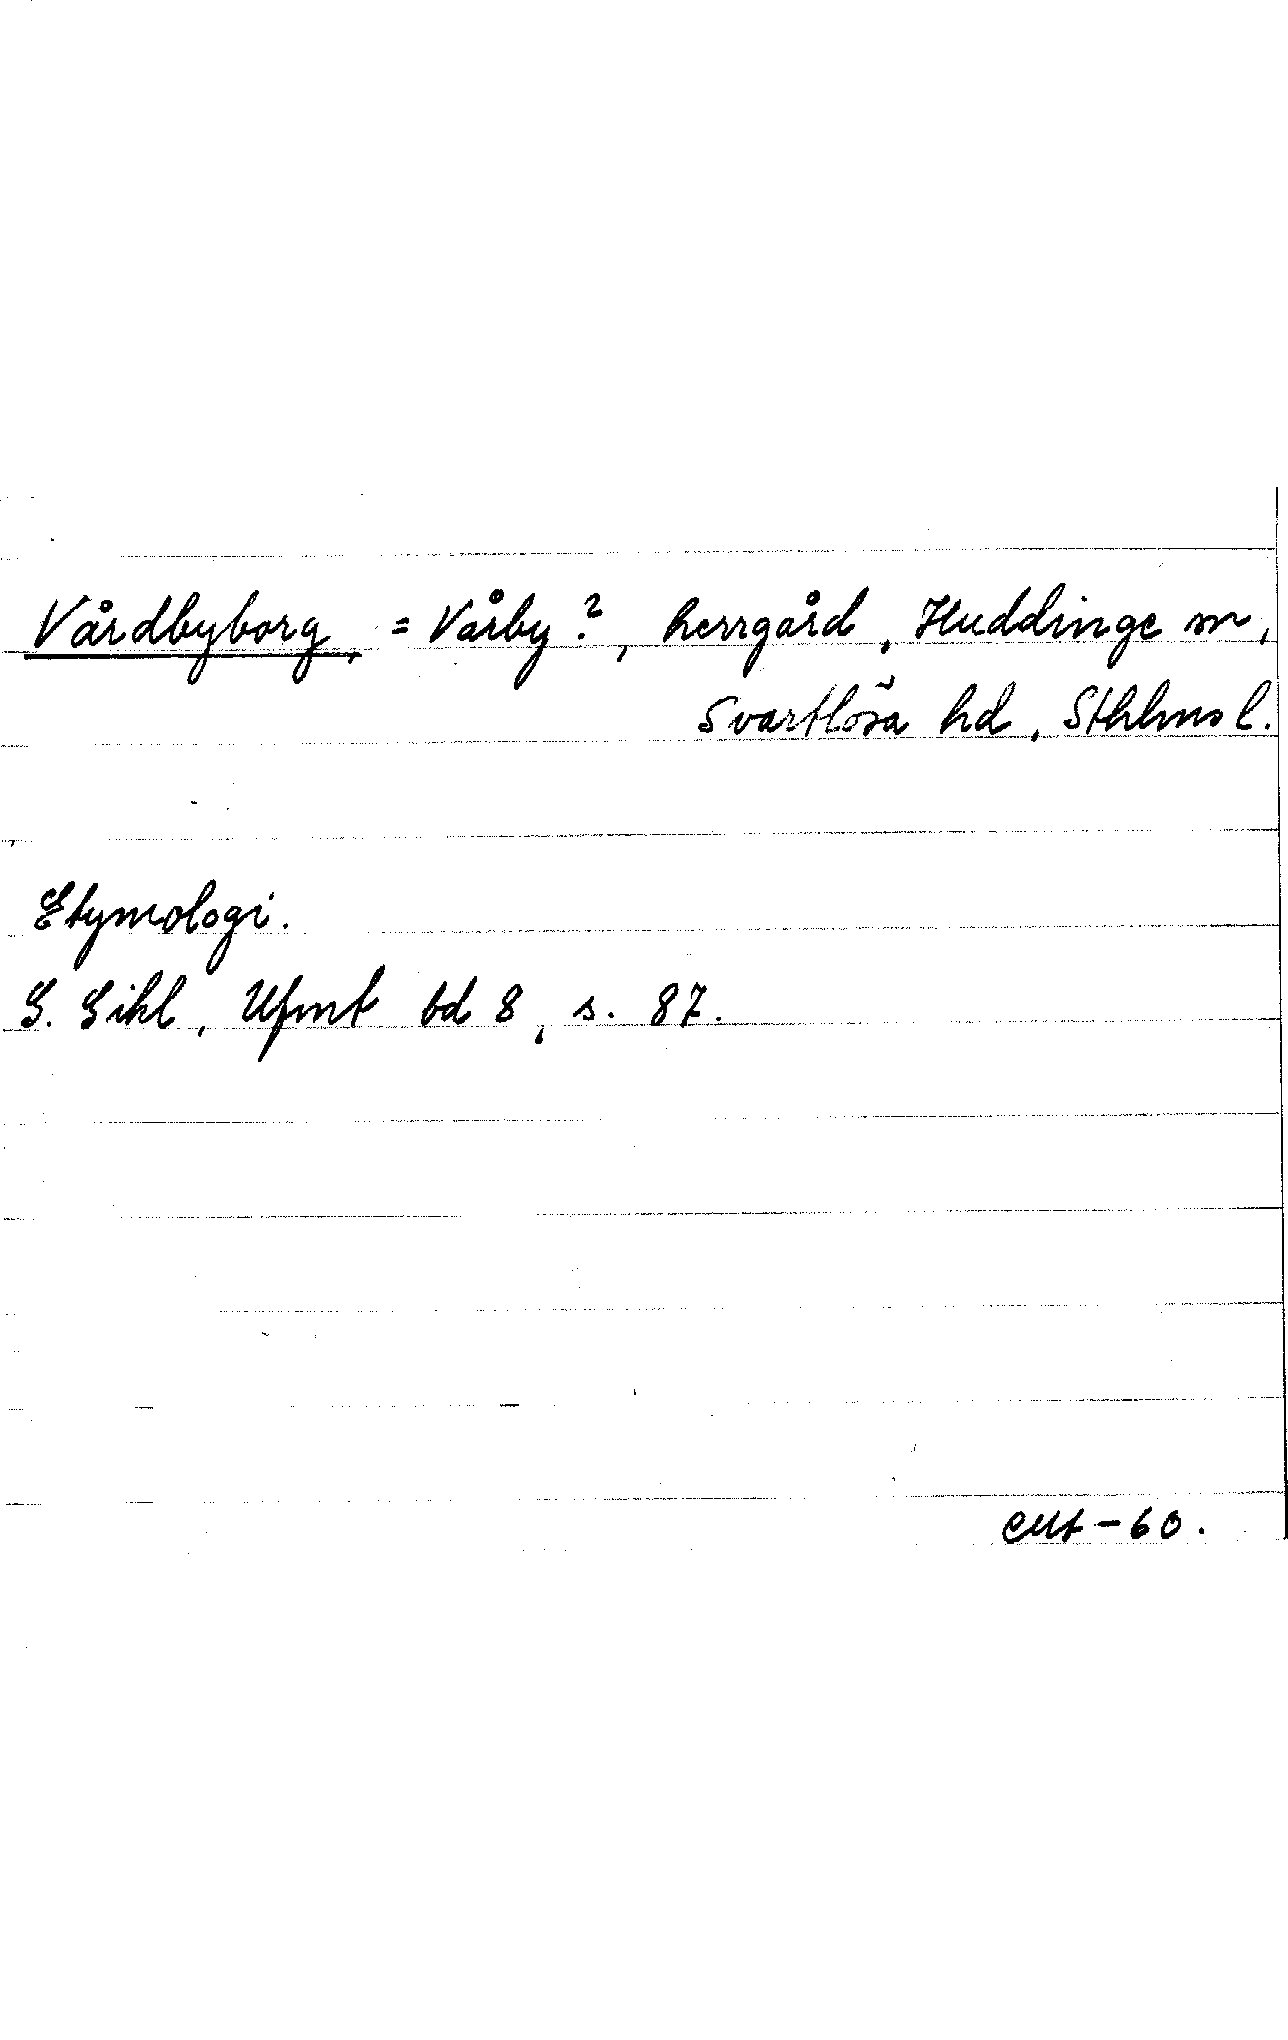 Vårdbyborg, = Vårby?, herrgård, Huddinge sn,
Svartlösa hd, Sthlms l.
Etymologi.
G. Gihl, Ufmt bd 8, s. 87.
-60.